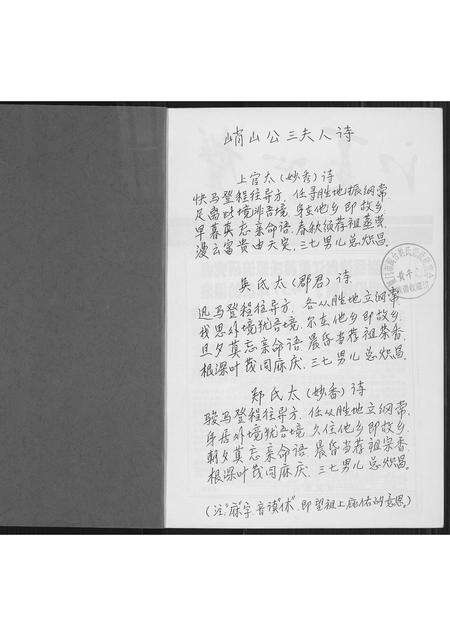 峭山公三夫人诗
上官太（妙秀）诗
快马登程往异方，任寻胜地振纲常，
足离此境非吾境，身在他乡即故乡，
早暮莫忘亲命语，春秋须荐祖蒸尝，
漫云富贵由天定，三七男儿总炽昌。
吴氏太（郡君）诗
迅马登程往异方，各从胜地立纲常，
我思外境犹吾境，尔在他乡即故乡，
旦夕莫忘亲命语，晨昏当荐祖宗香，
根深叶茂同庥庆，三七男儿总炽昌。
郑氏太（妙香）诗
骏马登程往异方，任从胜地立纲常，
身居外境犹吾境，久住他乡即故乡，
朝夕莫忘亲命语，晨昏当荐祖宗香，
根深叶茂同庥庆，三七男儿总炽昌。
（注："庥"字，音读"休"，即望祖上庇佑的意思。）